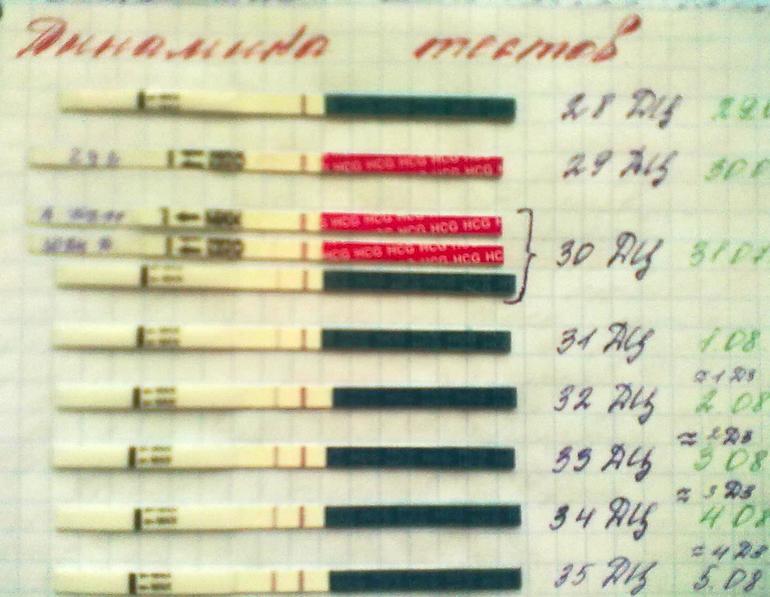 Динамика тестов
28 ДЦ
29 ДЦ
HCG HCG HCG HCG HCG
HCG HCG HCG HCG
30 ДЦ 31 07
HCG HCG HCG HCG HC
31 ДЦ 1.08
≈1 ДЗ
32 ДЦ 2.08
≈ 2 ДЗ
33 ДЦ 3 08
≈ 3 ДЗ
34 ДЦ 4 08
≈ 4 ДЗ
35 ДЦ 5.08